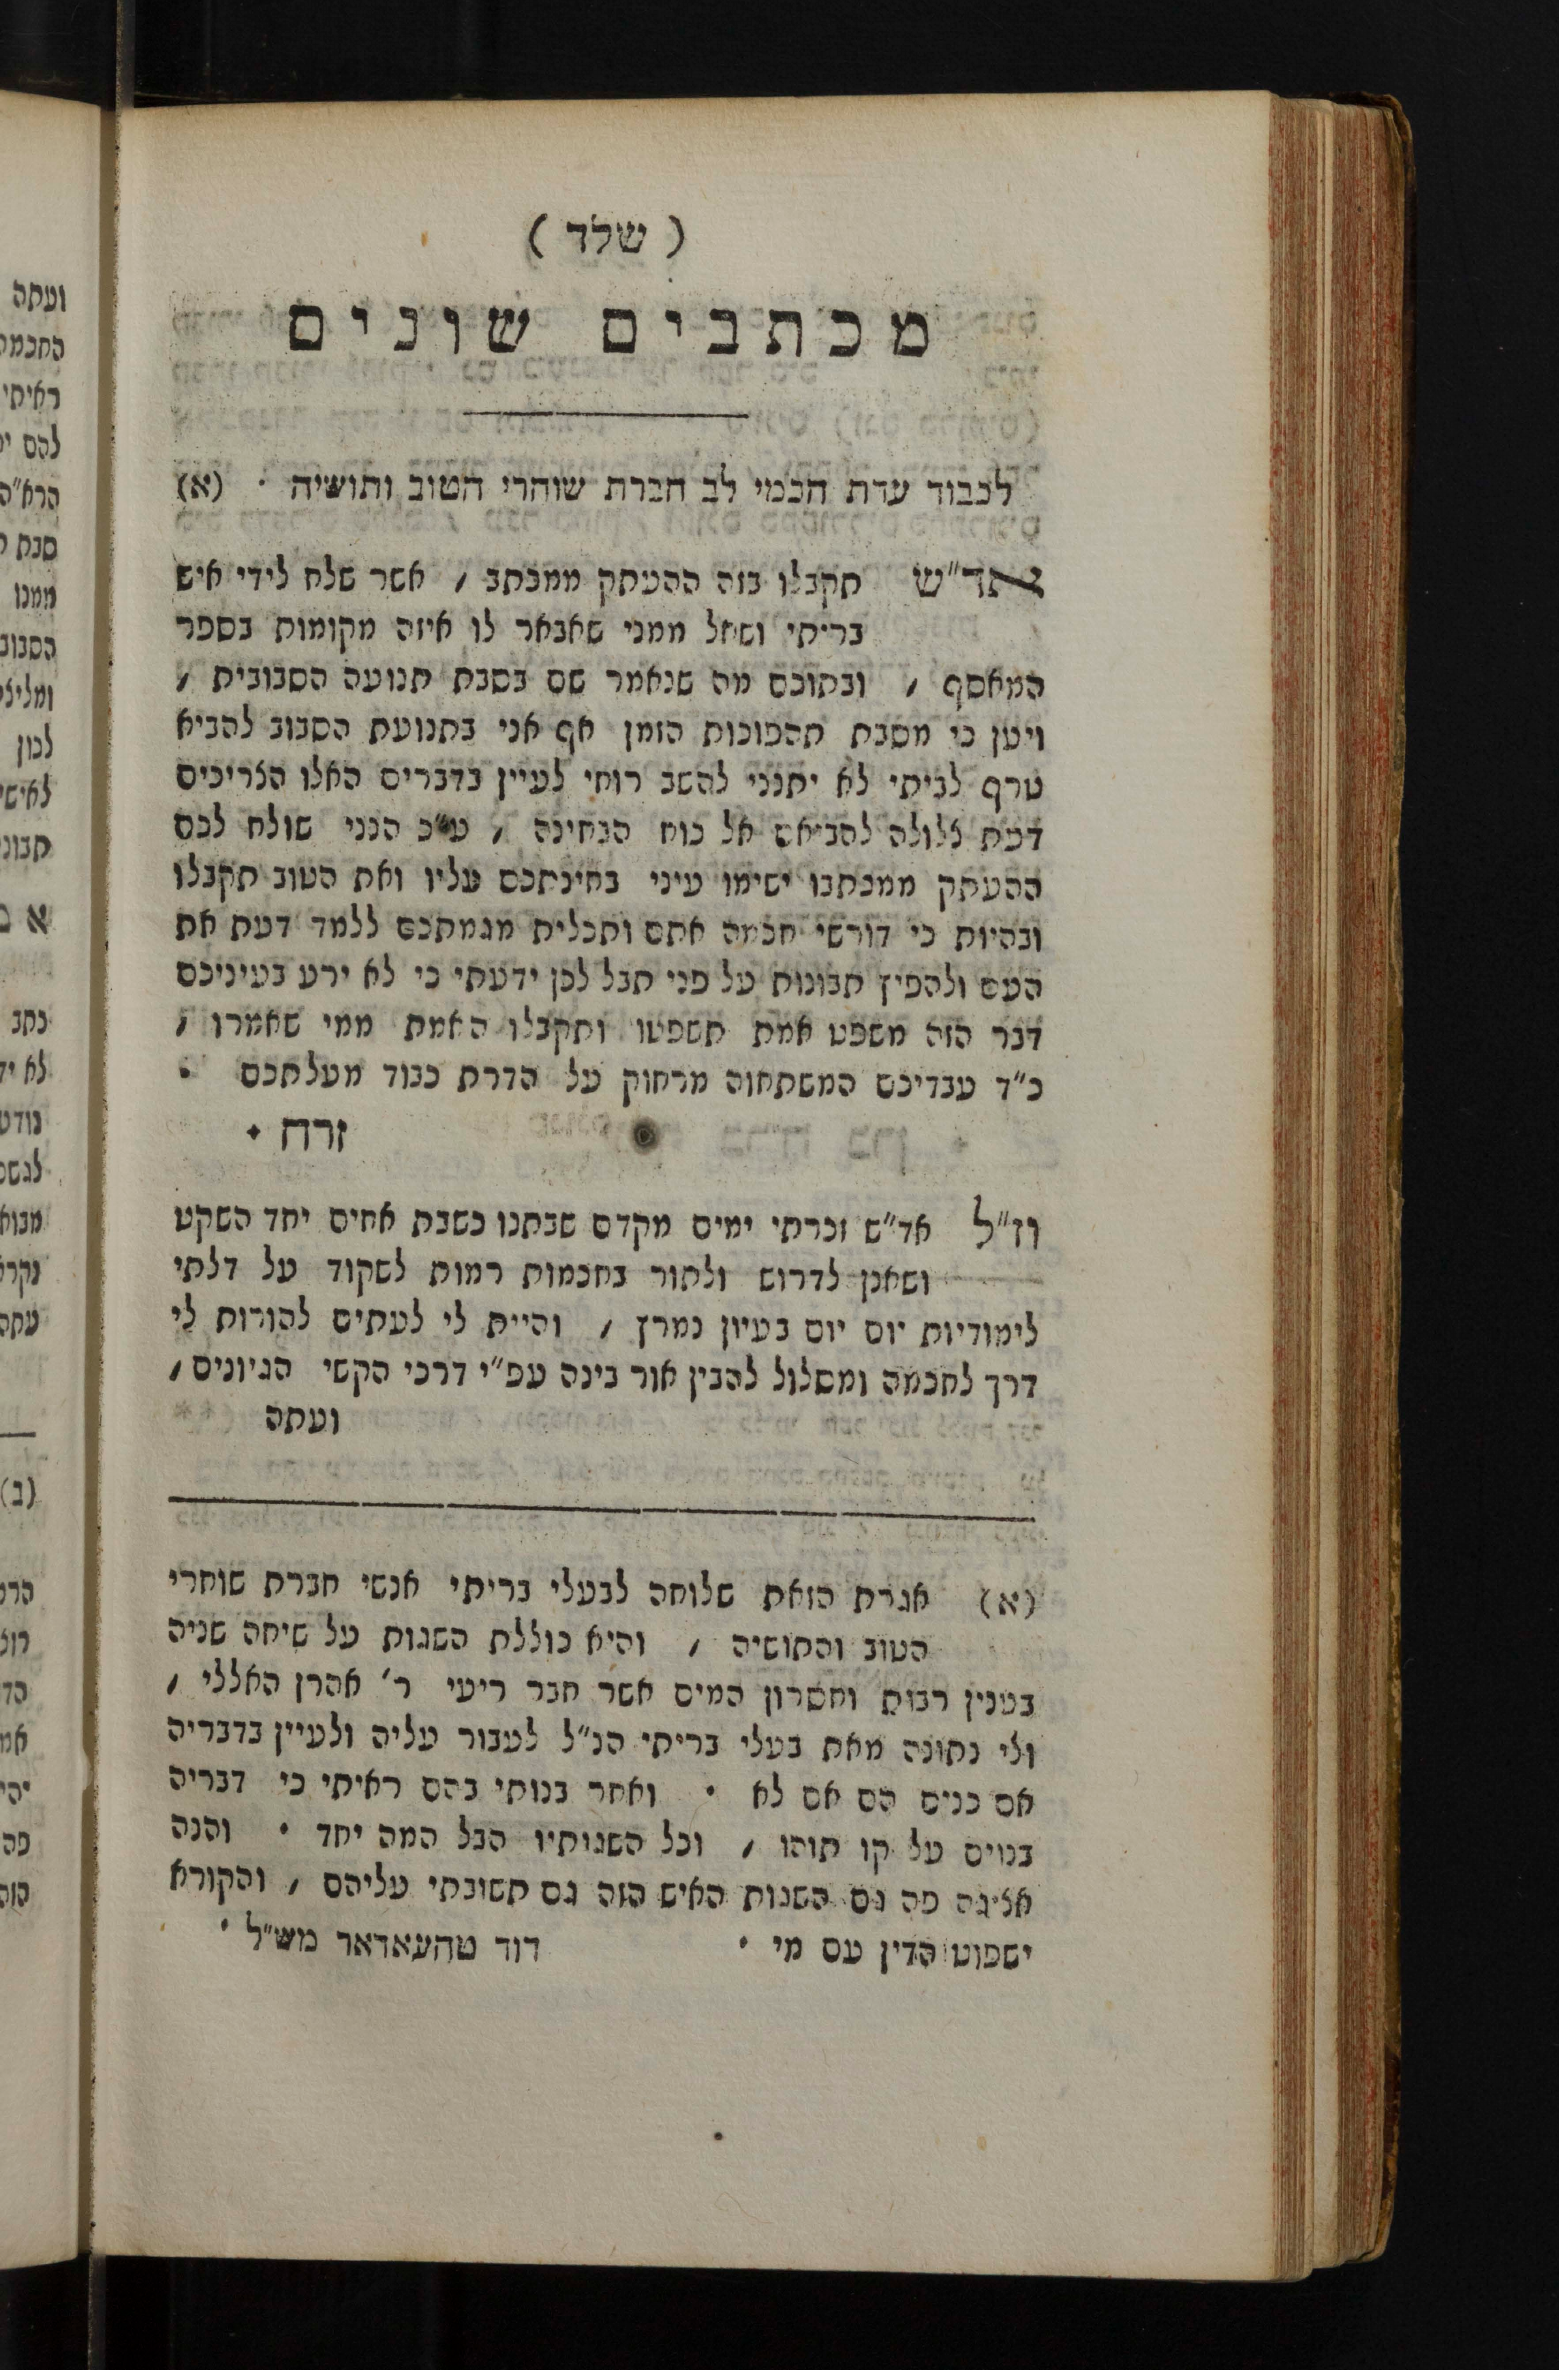 ( שלד )
מכתבים שונים
לכבוד עדת חכמי לב חברת שוחרי הטוב ותושיה · (א)
אחד״ש תקבלו בזה ההעתק ממכתב / אשר שלח לידי איש
בריתי ושאל ממני שאבאר לו איזה מקומות בספר
המאסף / ובתוכם מה שנאמר שם בסבת תנועה הסבובית /
ויען כי מסבת תהפוכות הזמן אף אני בתנועת הסבוב להביא
טרף לביתי לא יתנני להשב רוחי לעיין בדברים האלו הצריכים
דעת צלולה להביאם אל כוח הבחינה / ע״כ הנני שולח לכם
ההעתק ממכתבו ישימו עיני בחינתכם עליו ואת הטוב תקבלו
ובהיות כי דורשי חכמה אתם ותכלית מגמתכם ללמד דעת את
העם ולהפיץ תבונות על פני תבל לכן ידעתי כי לא ירע בעיניכם
דבר הזה משפט אמת תשפטו ותקבלו האמת ממי שאמרו /
כ״ד עבדיכם המשתחוה מרחוק על הדרת כבוד מעלתכם ·
זרח ·
וז״ל אד״ש זכרתי ימים מקדם שבתנו כשבת אחים יחד השקט
ושאנן לדרוש ולתור בחכמות רמות לשקוד על דלתי
לימודיות יום יום בעיון נמרץ / והיית לי לעתים להורות לי
דרך לחכמה ומסלול להבין אור בינה עפ״י דרכי הקשי הגיונים /
ועתה
(א) אגרת הזאת שלוחה לבעלי בריתי אנשי חברת שוחרי
הטוב והתושיה / והיא כוללת השגות על שיחה שניה
בענין רבות וחסרון המים אשר חבר ריעי ר׳ אהרן האללי /
ולי נתונה מאת בעלי בריתי הנ״ל לעבור עליה ולעיין בדבריה
אם כנים הם אם לא · ואחר בנותי בהם ראיתי כי דבריה
בנוים על קו תוהו / וכל השגותיו הבל המה יחד · והנה
אציגה פה גם השגות האיש הזה גם תשובתי עליהם / והקורא
ישפוט הדין עם מי · דוד טהעאדאר מש״ל ·
ועתה